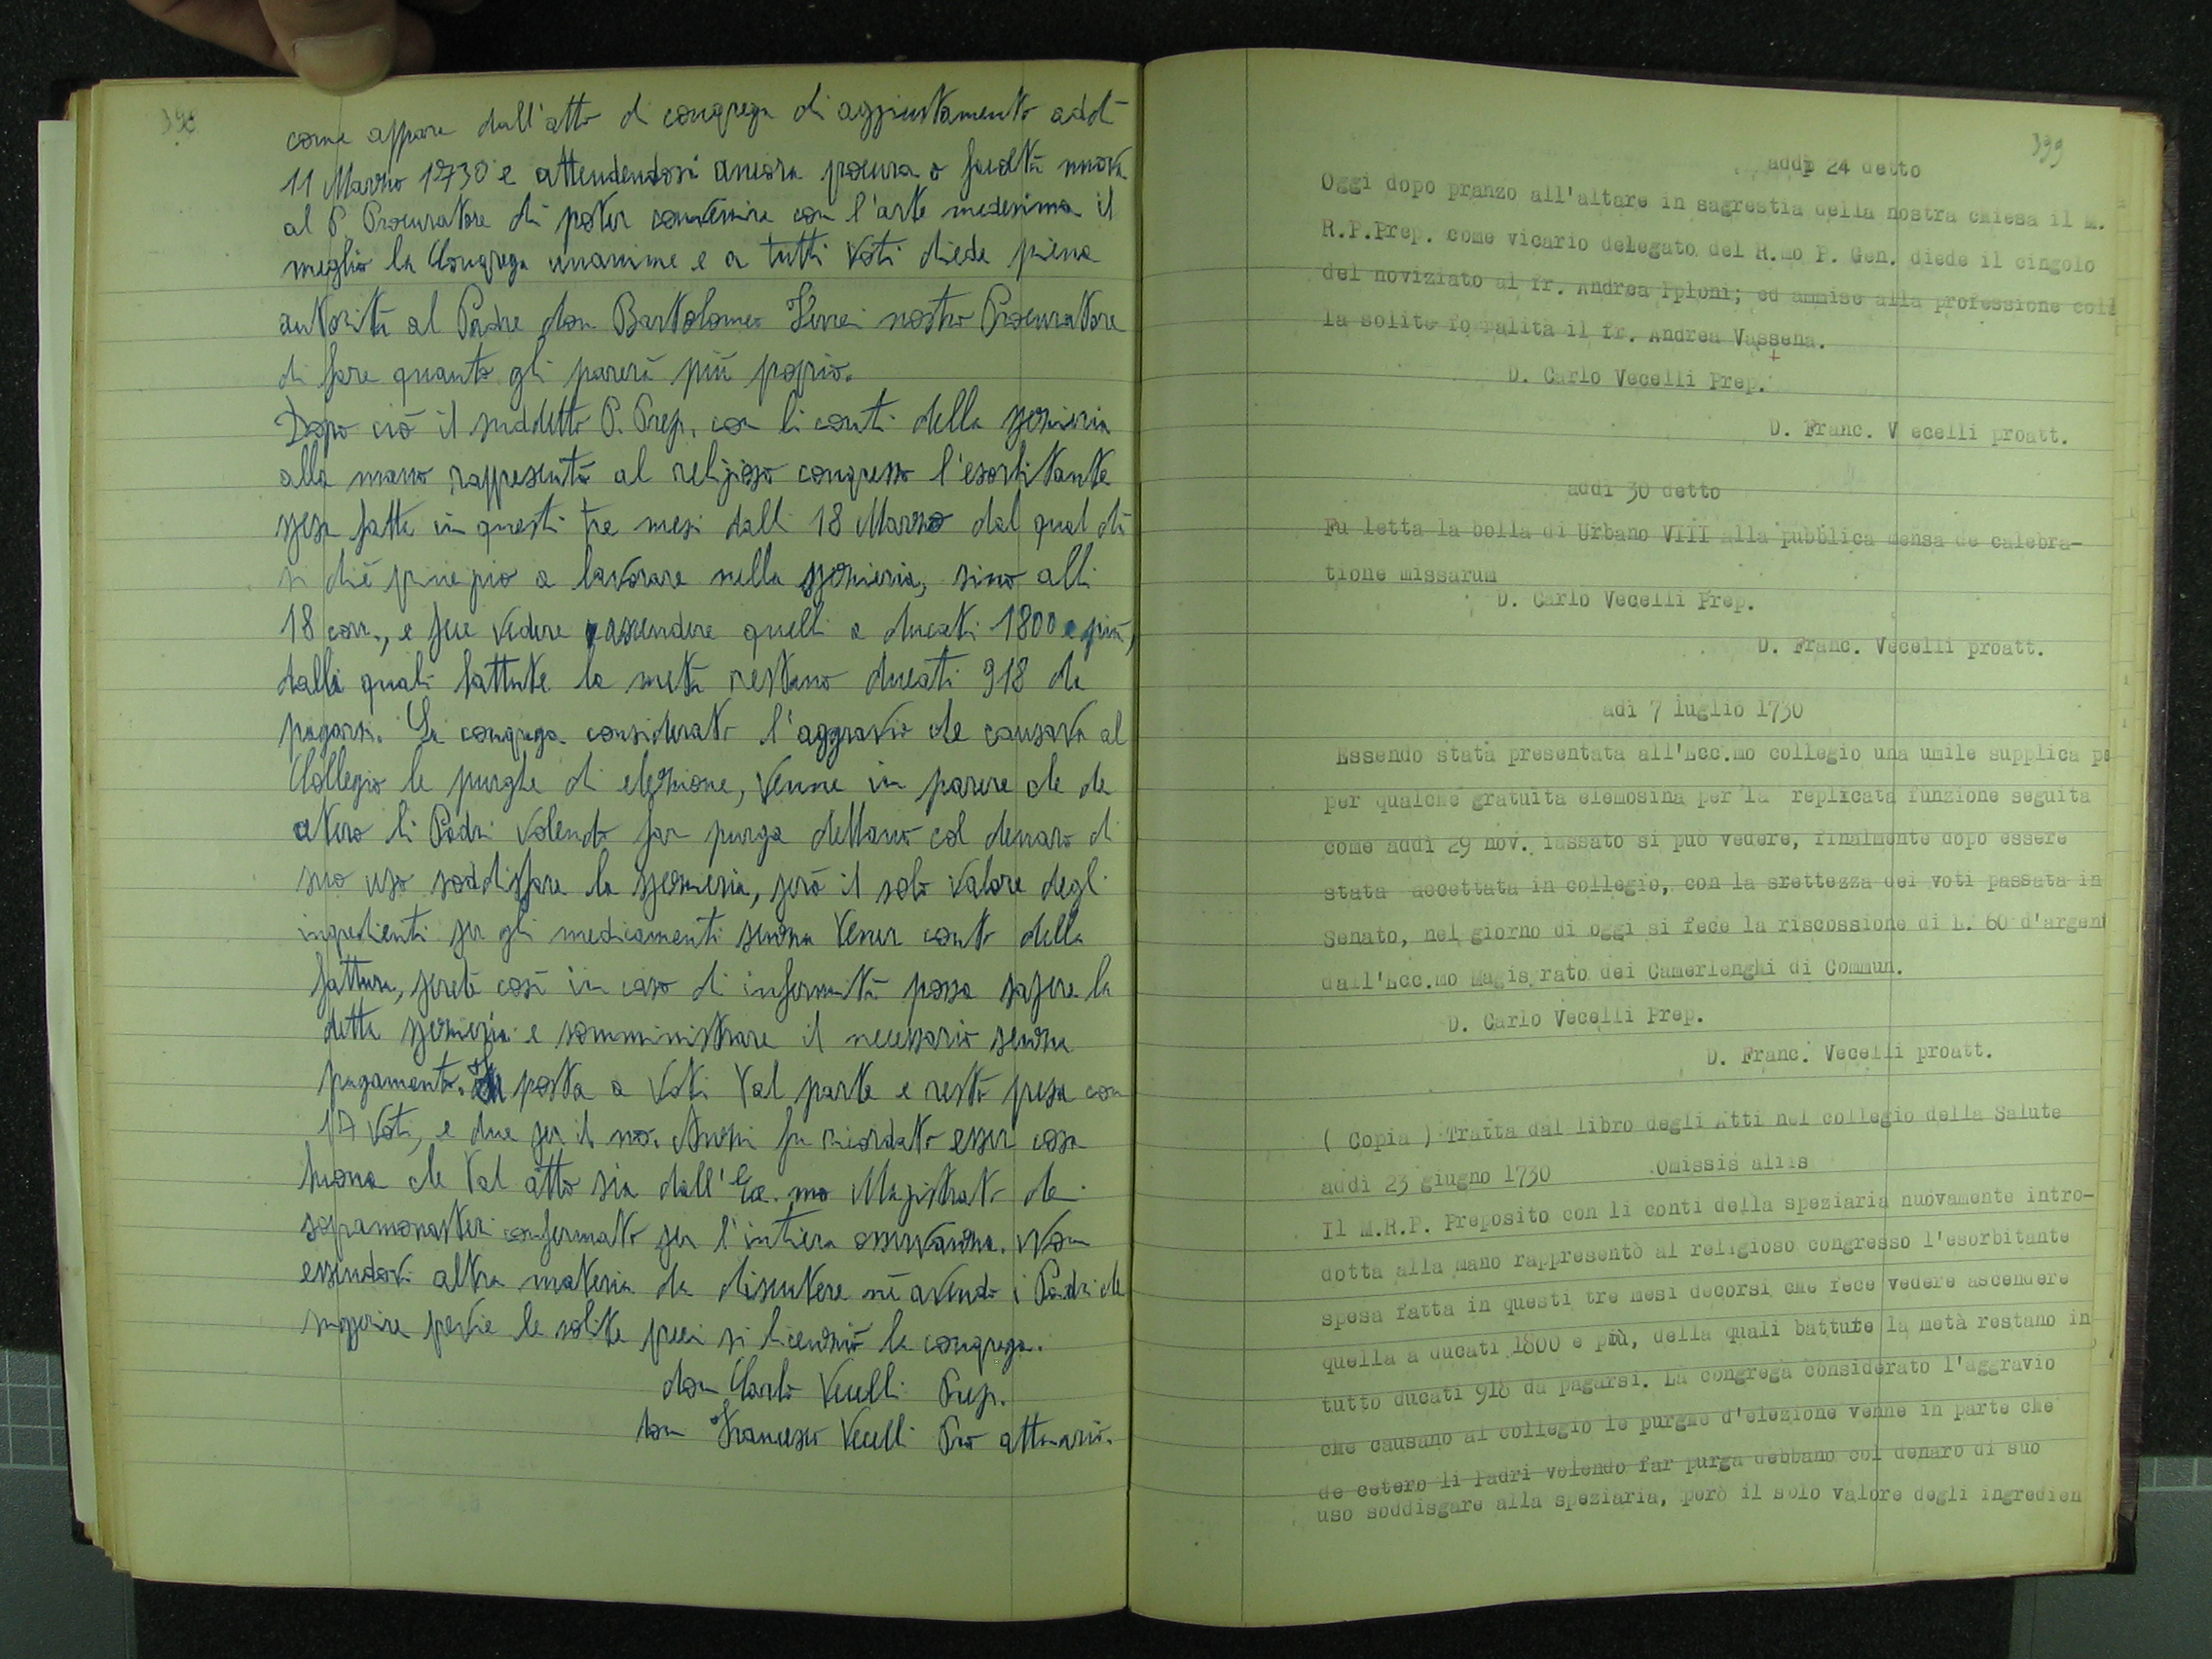 398
come appare dall'atto di congrega di aggiustamento addì
11 Marzo 1730 e attendendosi ancora procura o facoltà nuova
al P. Procuratore di poter convenire con l'arte medesima il
meglio la Congrega unanime e a tutti voti diede piena
autorità al Padre don Bartolomeo Ferrei nostro Procuratore
di fare quanto gli parerà più proprio.
Dopo ciò il suddetto P. Prep. con li conti della spezieria
alla mano rappresentò al religioso congresso l'esorbitante
spesa fatta in questi tre mesi dalli 18 Marzo dal qual dì
si diè principio a lavorare nella spezieria, sino alli
18 corr., e fece vedere ascendere quelli a ducati 1800 e più,
dalli quali battute la metà restano ducati 918 da
pagarsi. La congrega considerato l'aggravio che causava al
Collegio le purghe di elezione, venne in parere che de
cetero li Padri volendo far purga debbano col denaro di
suo uso soddisfare la spezieria, però il solo valore degli
ingredienti per gli medicamenti senza tener conto della
fattura, perché così in caso di infermità possa sapere la
detta spezieria e somministrare il necessario senza
pagamento. Fu posta a voti tal parte e restò presa con
17 voti, e due per il no. Anzi fu ricordato esser cosa
buona che tal atto sia dall'Ecc.mo Magistrato de
sopramonasteri confermato per l'intiera osservanza. Non
essendovi altra materia da discutere né avendo i Padri che
suggerire previe le solite preci si licenziò la congrega.
don Carlo Vecelli Prep.
don Francesco Vecelli Pro attuario.
399
addì 24 detto
Oggi dopo pranzo all'altare in sagrestia della nostra chiesa il M.
R.P.Prep. come vicario delegato del R.mo P. Gen. diede il cingolo
del noviziato al fr. Andrea Iploni; ed ammise alla professione coll
la solite fo malità il fr. Andrea Vassena.
D. Carlo Vecelli Prep.
D. Franc. V ecelli proatt.
addì 30 detto
Fu letta la bolla di Urbano VIII alla pubblica mensa de calebra-
tione missarum
D. Carlo Vecelli Prep.
D. Franc. Vecelli proatt.
adì 7 luglio 1730
Essendo stata presentata all'Ecc.mo collegio una umile supplica pe
per qualche gratuita elemosina per la replicata funzione seguita
come addì 29 nov. iassato si può vedere, finalmente dopo essere
stata accettata in collegio, con la srettezza dei voti passata in
Senato, nel giorno di oggi si fece la riscossione di L. 60 d'argent
dall'Ecc.mo Magis rato dei Camerlenghi di Commun.
D. Carlo Vecelli Prep.
D. Franc. Vecelli proatt.
( Copia ) Tratta dal libro degli Atti nel collegio della Salute
addì 23 giugno 1730 Omissis aliis
Il M.R.P. Preposito con li conti della speziaria nuovamente intro-
dotta alla mano rappresentò al religioso congresso l'esorbitante
spesa fatta in questi tre mesi decorsi che fece vedere ascendere
quella a ducati 1800 e più, della quali battute la metà restano in
tutto ducati 918 da pagarsi. La congrega considerato l'aggravio
che causano al collegio le purghe d'elezione venne in parte che
de cetero li Padri volendo far purga debbano col denaro di suo
uso soddisgare alla speziaria, però il solo valore degli ingredien